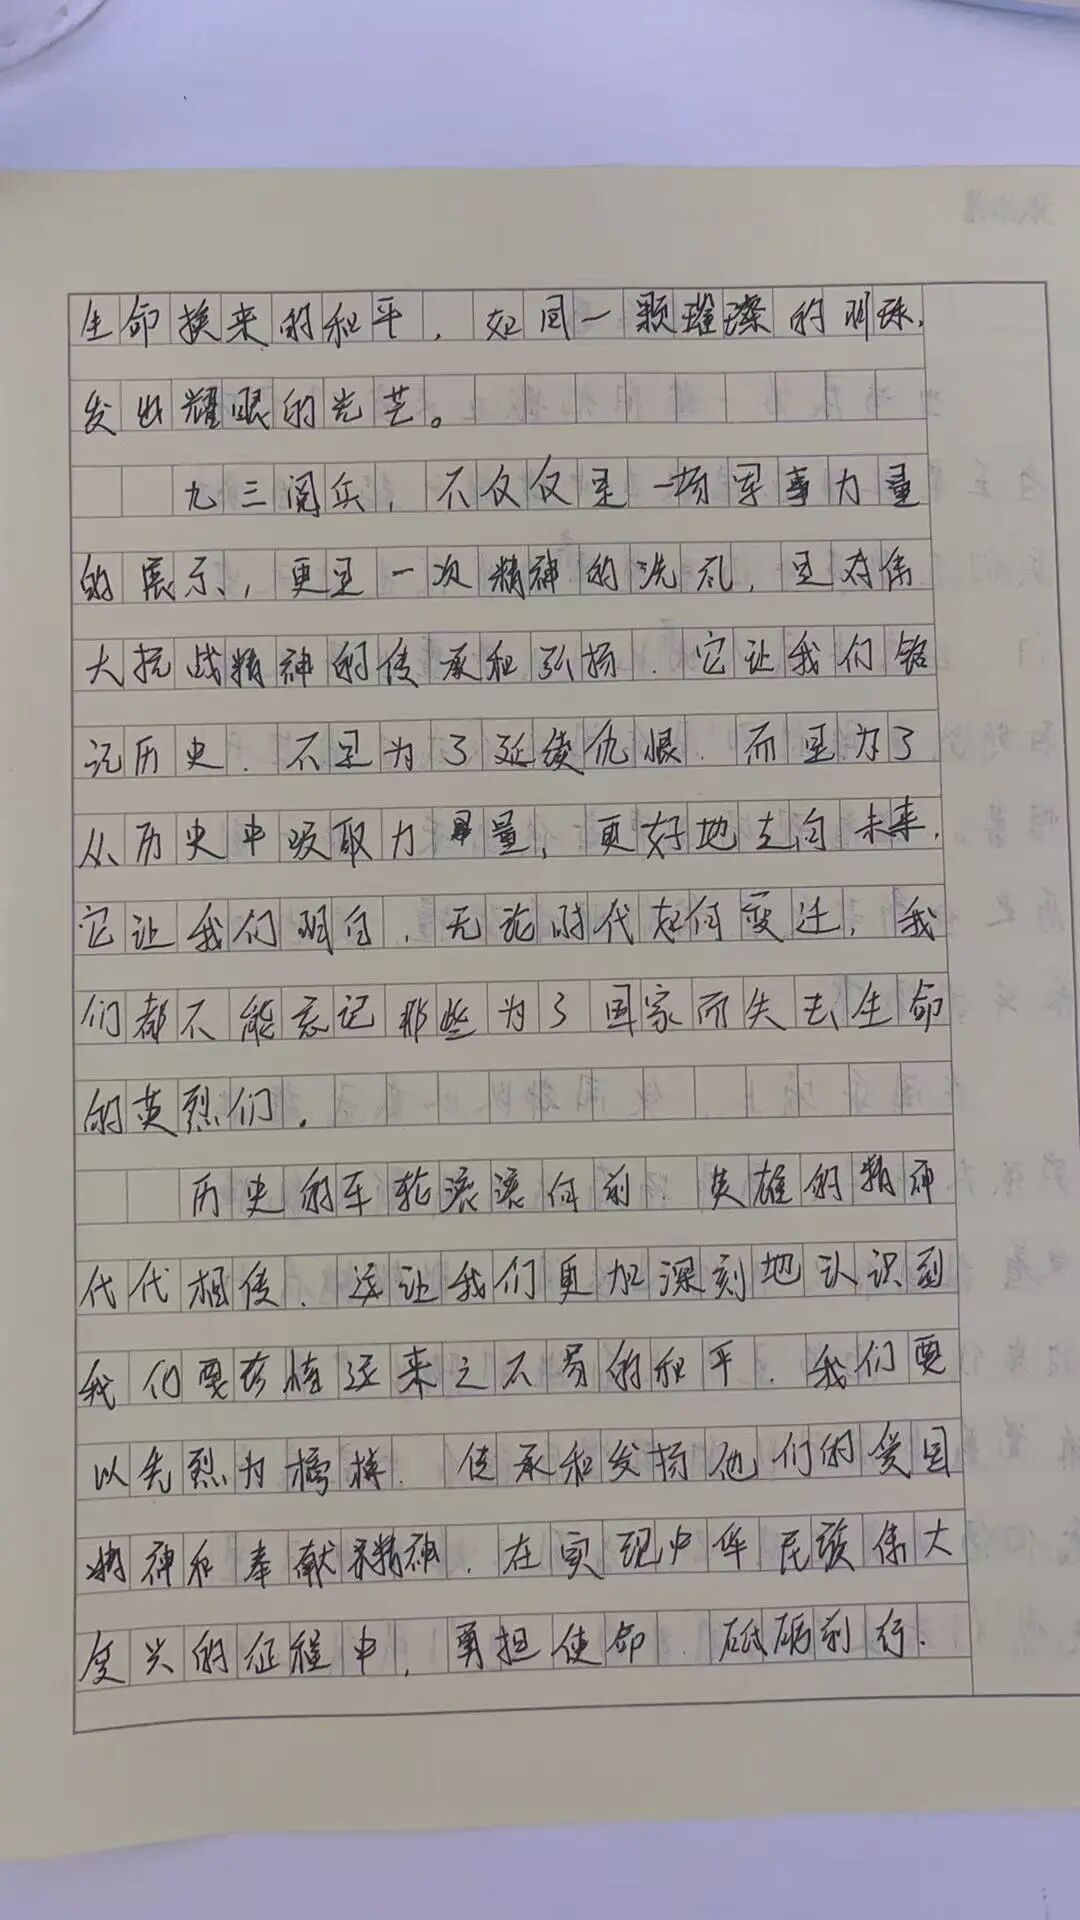 生命换来的和平，如同一颗璀璨的明珠，
发出耀眼的光芒。
九三阅兵，不仅仅是一场军事力量
的展示，更是一次精神的洗礼，是对伟
大抗战精神的传承和弘扬．它让我们铭
记历史．不是为了延续仇恨．而是为了
从历史中吸取力量，更好地走向未来．
它让我们明白，无论时代如何变迁，我
们都不能忘记那些为了国家而失去生命
的英烈们．
历史的车轮滚滚向前．英雄的精神
代代相传．这让我们更加深刻地认识到
我们要珍惜这来之不易的和平．我们要
以先烈为榜样．传承和发扬他们的爱国
精神和奉献精神．在实现中华民族伟大
复兴的征程中，勇担使命．砥砺前行．